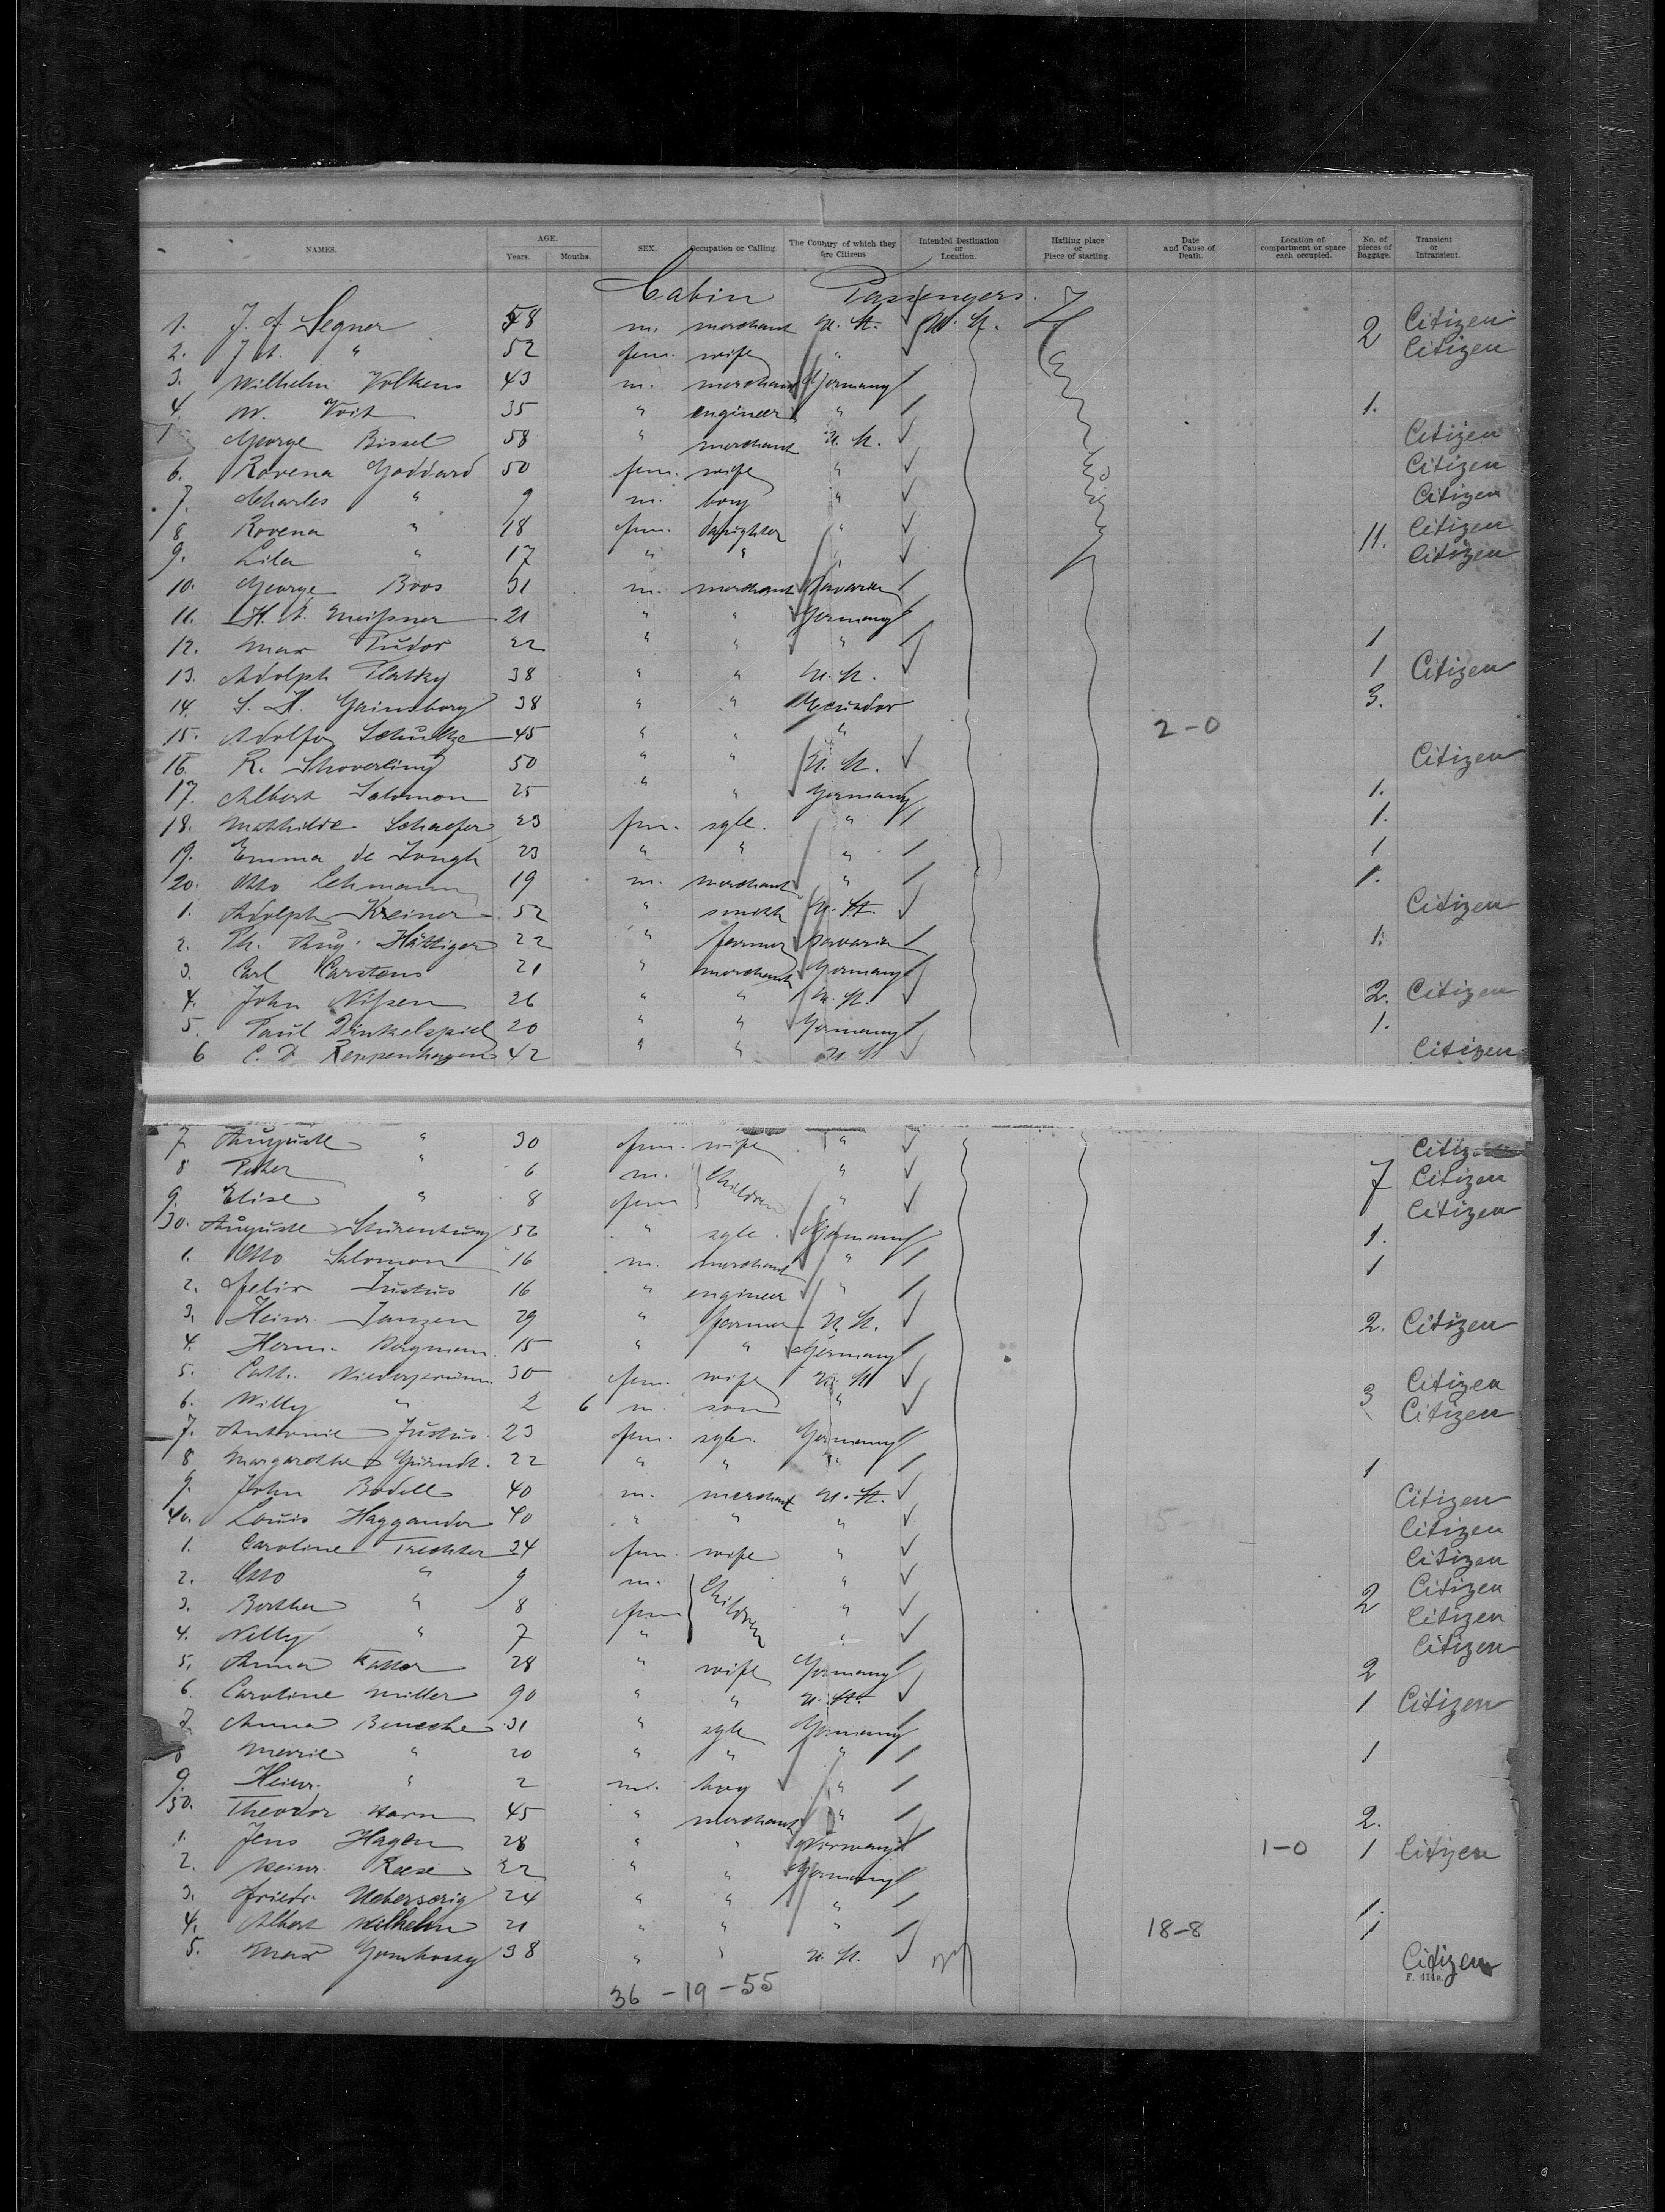 NAMES. AGE. Years. Months. SEX. Occupation or Calling. The Country of which they are Citizens Intended Destination or Location. Hailing place or Place of starting. Date and Cause of Death. Location of compartment or space each occupied. No. of pieces of Baggage. Transient or Intransient.
Cabin Passengers.
1. J. F. Segner 58 m. merchant U. St. U. St. Hamburg Citizen
2. " 52 fem. wife " 2 Citizen
3. Wilhelm Volkens 43 m. merchant Germany
4. W. Voit 35 " engineer " 1.
George Bissel 58 " merchant U. St. Citizen
6. Rovena Goddard 50 fem. wife " Citizen
7. Charles " 9 m. boy " Citizen
8 Rovena " 18 fem. daughter " 11. Citizen
9. Lila " 17 " " " Citizen
10. George Boos 31 m. merchant Bavaria
11. H. A. Meißner 21 " " Germany
12. Max Pudor 22 " " " 1
13. Adolph Platzky 38 " " U. St. 1 Citizen
14. S. H. Gainsborg 38 " " Ecuador 3.
15. Adolfo Schultze 45 " " " 2-0
16. R. Shoverling 50 " " U. St. Citizen
17. Albert Salomon 25 " " Germany 1.
18. Mathilde Schaefer 23 fem. sgle. " 1.
19. Emma de Jongh 23 " " " 1
20. Otto Lehmann 19 m. merchant " 1.
1. Adolph Kreiner 52 " smith U. St. Citizen
2. Ph. Aug. Hättiger 22 " farmer Bavaria 1.
3. Carl Carstens 21 " merchant Germany
4. John Nißen 26 " " U. St. 2. Citizen
5. Paul Dinkelspiel 20 " " Germany 1.
6 C. D. Reppenhagen 42 " " U. St. Citizen
7. Auguste " 30 fem. wife " Citizen
8 Peter " 6 m. Children " 7 Citizen
9. Elise " 8 fem " Citizen
30. Auguste Stürenburg 56 " sgle. Germany 1.
1. Otto Salomon 16 m. merchant " 1
2. Felix Justus 16 " engineer "
3. Heinr. Janzen 29 " farmer U. St. 2. Citizen
4. Herm. Bergmann 15 " " Germany
5. Cath. 30 fem. wife U. St. Citizen
6. Willy " 2 6 m. son " 3 Citizen
7. Antonie Justus 23 fem. sgle. Germany
8 Margarethe 22 " " " 1
9. John Bodell 40 m. merchant U. St. Citizen
40. Louis Haggander 40 " " " Citizen
1. Caroline Trechter 34 fem. wife " Citizen
2. Otto " 9 m. Children " Citizen
3. Bertha " 8 fem " 2 Citizen
4. Nelly " 7 " " Citizen
5. Anna 28 " wife Germany 2
6. Caroline Miller 90 " " U. St. 1 Citizen
7. Anna Benecke 31 " sgle Germany
8 Marie " 20 " " " 1
9. Heinr. " 2 m. boy "
50. Theodor 45 " merchant " 2.
1. Jens Hagen 28 " " Norway 1-0 1 Citizen
2. Heinr. Reese 22 " " Germany
3. Friedr. Ueberserig 24 " " " 1.
4. Albert Wilhelm 21 " " " 18-8 1
5. Max 38 " " U. St. Citizen
F. 414a.
36 - 19 - 55